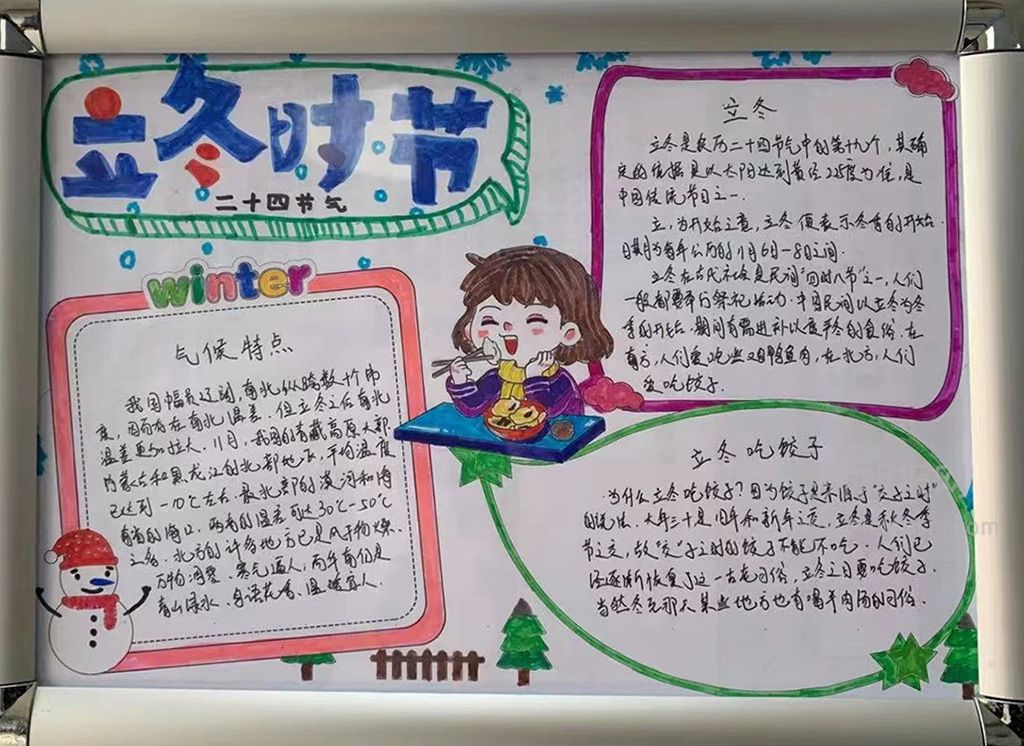 立冬时节
二十四节气
立冬
立冬是农历二十四节气中的第十九个，其确
定的依据是以太阳达到黄经225度为准，是
中国传统节日之一.
立，为开始之意，立冬便表示冬季的开始.
日期为每年公历的11月6日-8日之间.
立冬在古代社会是民间"四时八节"之一，人们
一般都要举行祭祀活动.中国民间以立冬为冬
季的开始.期间有需进补以度严冬的食俗.在
南方，人们爱吃些鸡鸭鱼肉，在北方，人们
爱吃饺子.
winter
气候特点
我国幅员辽阔，南北纵跨数十个纬
度，因而存在南北温差.但立冬之后南北
温差更加拉大.11月，我国的青藏高原大部.
内蒙古和黑龙江的北部地区，平均温度
已达到-10℃左右.最北部的漠河和海
南省的海口，两者的温差可达30℃-50℃
之多.北方的许多地方已是风干物燥.
万物凋零.寒气逼人，而华南仍是
青山绿水.鸟语花香.温暖宜人.
立冬吃饺子
为什么立冬吃饺子？因为饺子是来源于"交子之时"
的说法.大年三十是旧年和新年之交，立冬是秋冬季
节之交，故"交"子之时的饺子不能不吃.人们已
还逐渐恢复了这一古老习俗，立冬之日要吃饺子.
当然冬至那天某些地方也有喝羊肉汤的习俗.
om